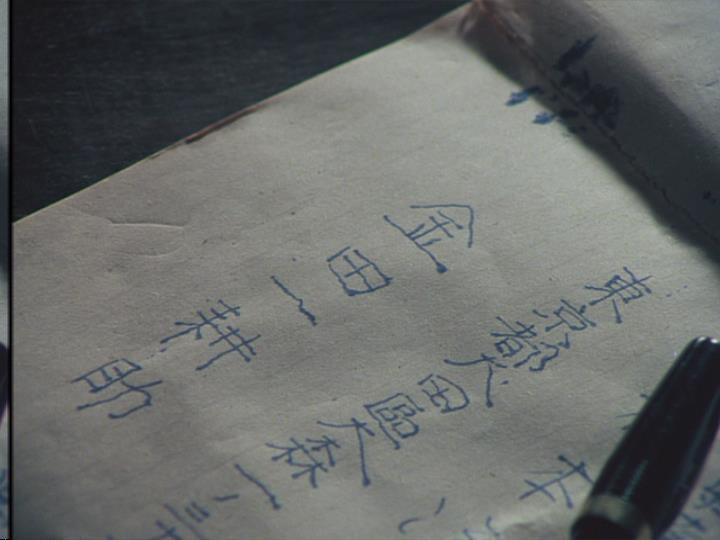 東京都大田區大森一、三
金田一耕助